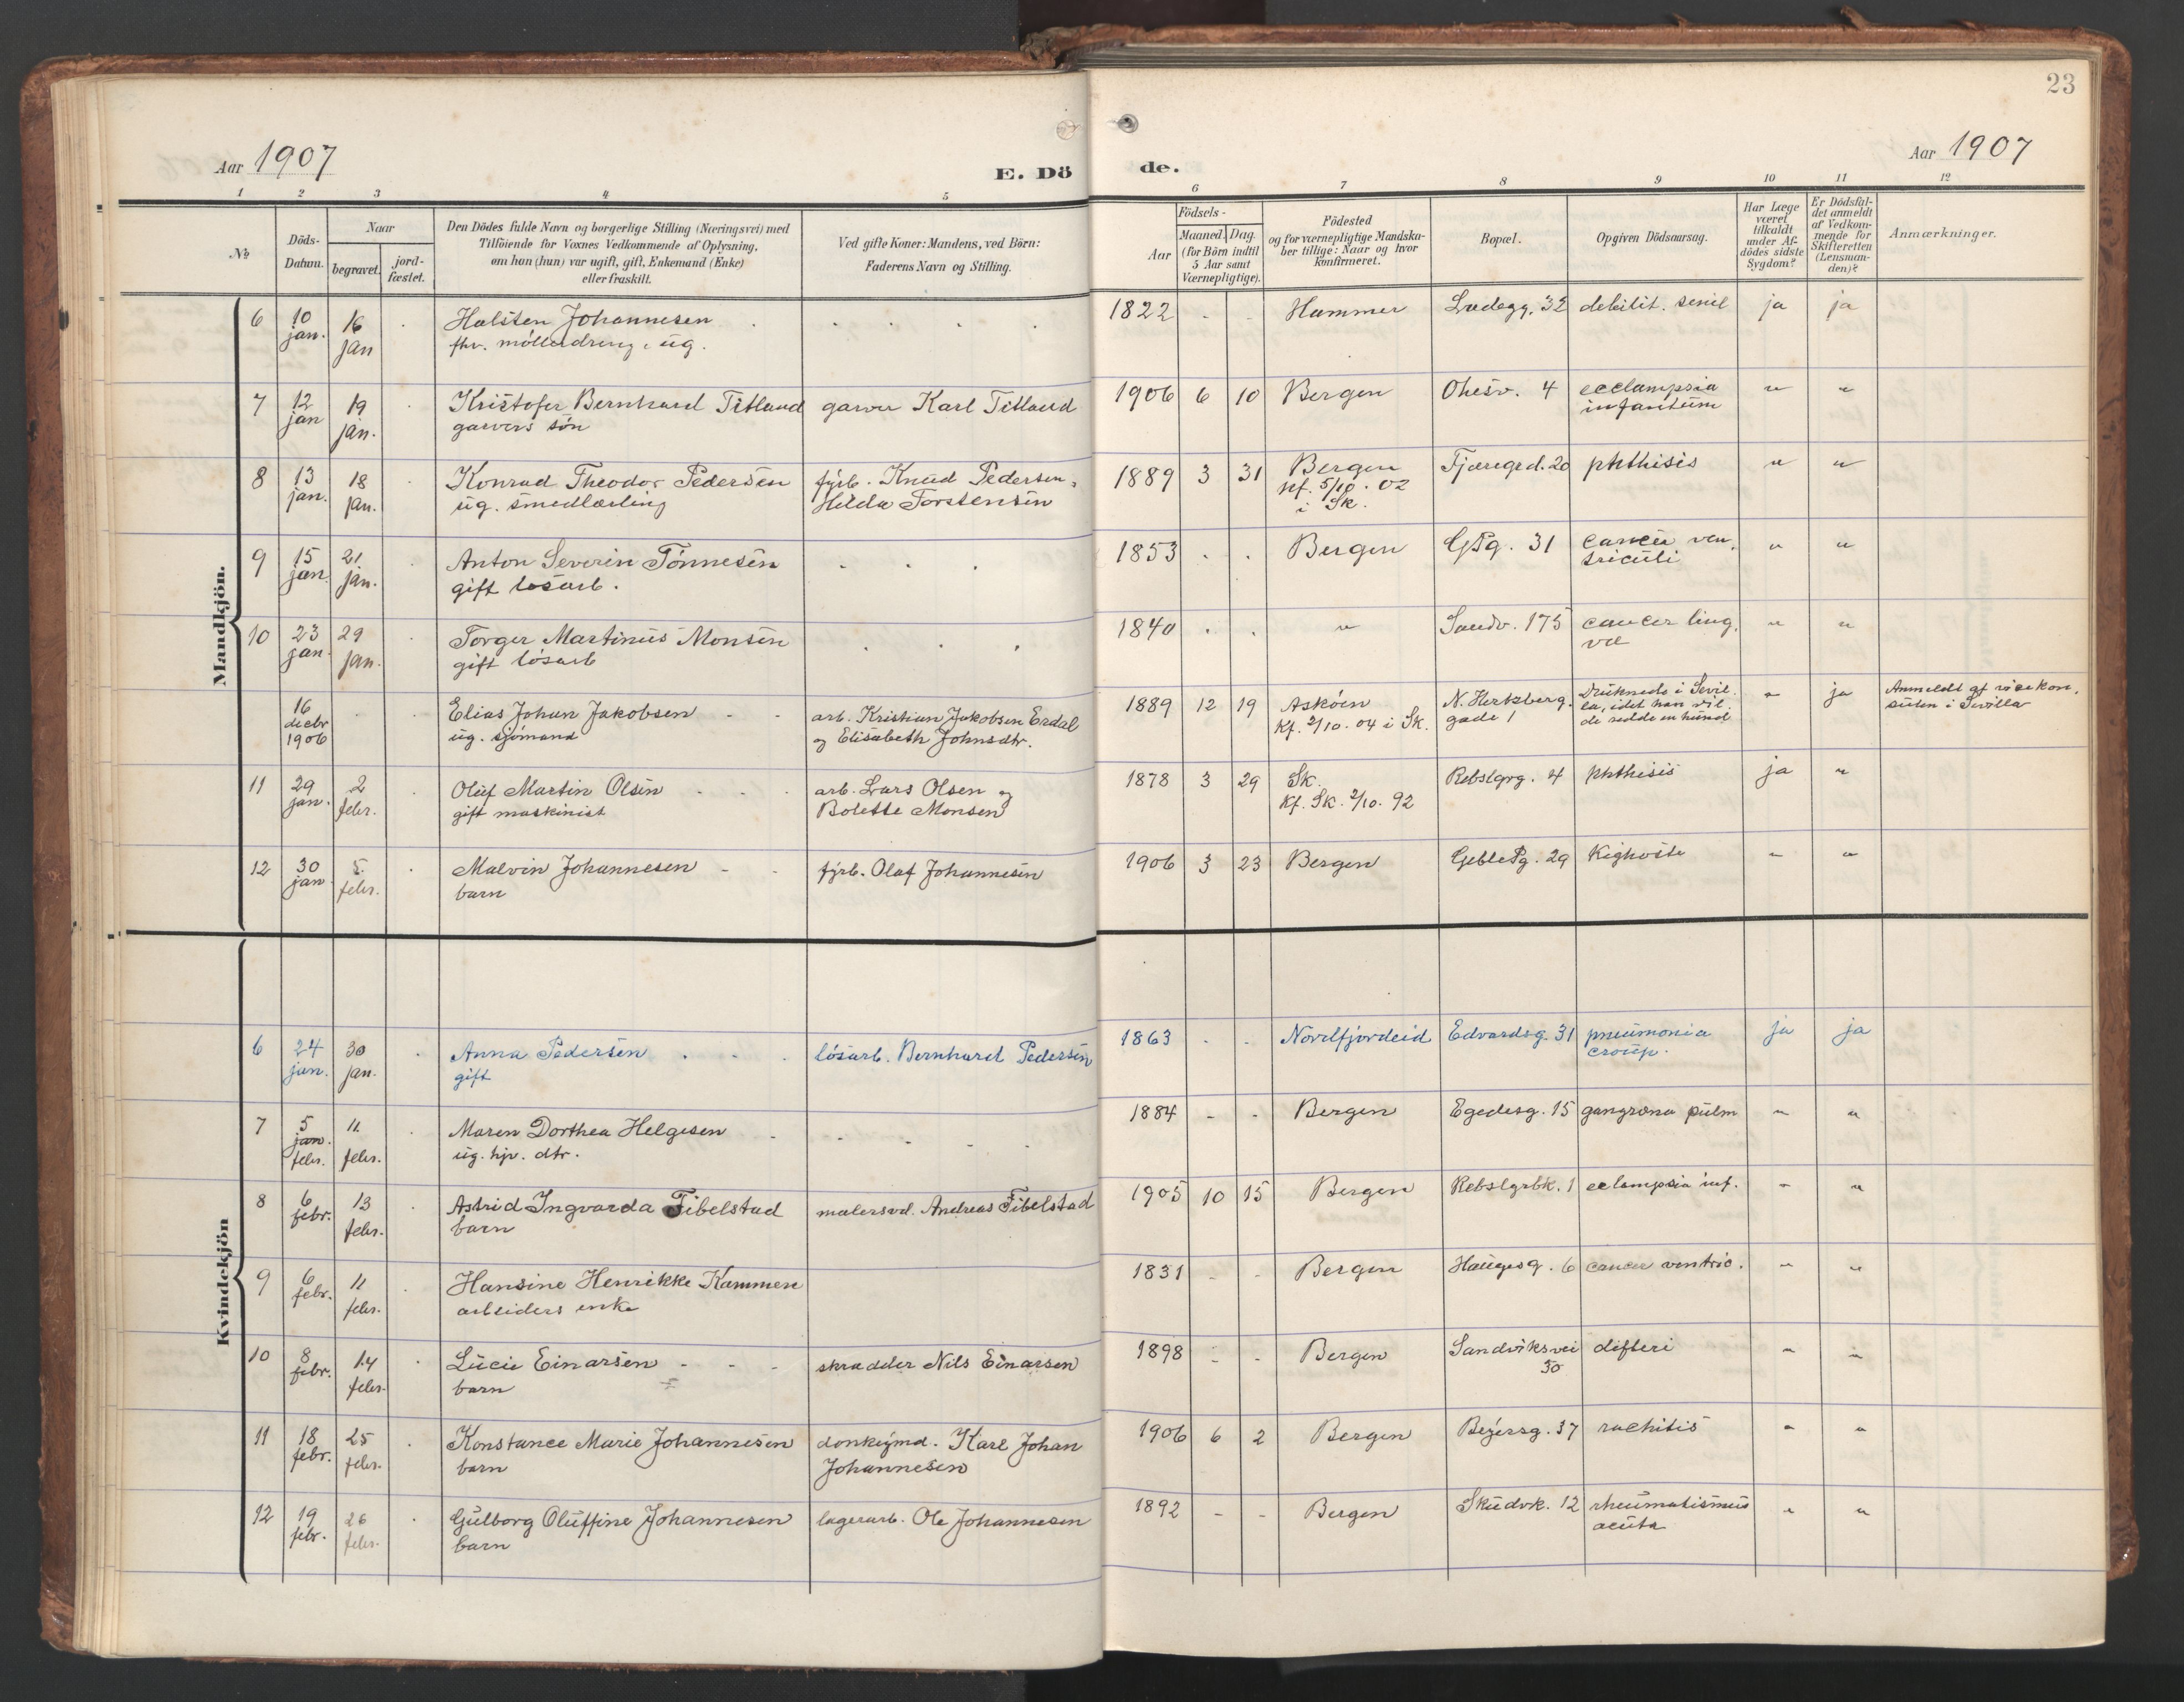 23
Aar 1907
E. Dö
de.
Aar 1907
1 2 3 4 5 6 7 8 9 10 11 12
No
Döds-
Datum.
Naar
begravet.
jord-
fæstet.
Den Dödes fulde Navn og borgerlige Stilling (Næringsvei) med
Tilföiende for Voxnes Vedkommende af Oplysning,
om han (hun) var ugift, gift, Enkemand (Enke)
eller fraskilt.
Ved gifte Koner: Mandens, ved Börn:
Faderens Navn og Stilling.
Födsels-
Aar
Maaned. Dag.
(for Börn indtil
5 Aar samt
Værnepligtige).
Födested
og for værnepligtige Mandska-
ber tillige: Naar og hvor
konfirmeret.
Bopæl.
Opgiven Dödsaarsag.
Har Læge
været
tilkaldt
under Af-
dödes sidste
Sygdom?
Er Dödsfal-
det anmeldt
af Vedkom-
mende for
Skifteretten
(Lensman-
den)?
Anmærkninger.
Mandkjön.
6 10 jan. 16 jan Halsten Johannesen 1822 - - Hammer Ladegg. 32 debilit. senil ja ja
fhv. møllerdreng, ug.
7 12 jan 19 jan. Kristofer Bernhard Titland garver Karl Titland 1906 6 10 Bergen Ohesv. 4 ecclampsia " "
garvers søn infantum
8 13 jan. 18 jan. Konrad Theodor Pedersen fyrb. Knud Pedersen, 1889 3 31 Bergen Tjæregrd. 20 phthisis " "
ug. smedlærling Hilda Torstensen kf. 5/10. 02
i Sk.
9 15 jan. 21 jan. Anton Severin Tönnesen 1853 . . Bergen GPg. 31 cancer ven- " "
gift løsarb. triculi
10 23 jan. 29 jan. Torger Martinus Monsen 1840 . . " Sandv. 175 cancer ling- " "
gift løsarb væ
16 decbr 1906 Elias Johan Jakobsen arb. Kristian Jakobsen Erdal 1889 12 19 Askøen N. Hertzberg- Druknede i Sevil- " ja Anmeldt af visekon-
ug. sjømand og Elisabeth Johnsdtr. Kf. 2/10. 04 i Sk. gade 1 la, idet han vil- sulen i Sevilla
de redde en hund
11 29 jan. 2 febr. Oluf Martin Olsen arb. Lars Olsen og 1878 3 29 Sk. Rebslgrg. 4 phthisis ja "
gift maskinist Bolette Monsen Kf. Sk. 2/10. 92
12 30 jan 5. febr. Malvin Johannesen fyrb. Olaf Johannesen 1906 3 23 Bergen GeblePg. 29 Kighoste " "
barn
Kvindekjön
6 24 jan. 30 jan. Anna Pedersen løsarb. Bernhard Pedersen 1863 - - Nordfjordeid Edvardsg. 31 pneumonia ja ja
gift croup.
7 5 jan. febr. 11 febr. Maren Dorthea Helgesen 1884 - - Bergen Egedesg. 15 gangræna pulm " "
ug. hjv. dtr.
8 6 febr. 13 febr. Astrid Ingvarda Fibelstad malersvd. Andreas Fibelstad 1905 10 15 Bergen Rebslgrbk. 1 eclampsia inf. " "
barn
9 6 febr. 11 febr. Hansine Henrikke Kammen 1831 - - Bergen Haugesg. 6 cancer ventric. " "
arbeiders enke
10 8 febr. 14 febr. Lucie Einarsen skrædder Nils Einarsen 1898 - - Bergen Sandviksvei difteri " "
barn 50
11 18 febr. 25 febr. Konstance Marie Johannesen donkeymd. Karl Johan 1906 6 2 Bergen Beyersg. 37 rachitis " "
barn Johannesen
12 19 febr. 26 febr. Gulborg Oluffine Johannesen lagerarb. Ole Johannesen 1892 - - Bergen Skudvk. 12 rheumatismus " "
barn acuta